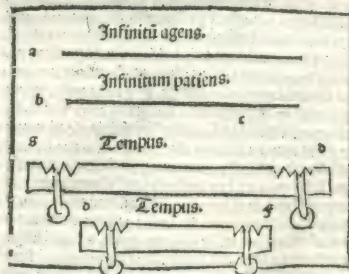 Infinitū agens.
a
Infinitum patiens.
b
c
g Tempus. d
d Tempus. f